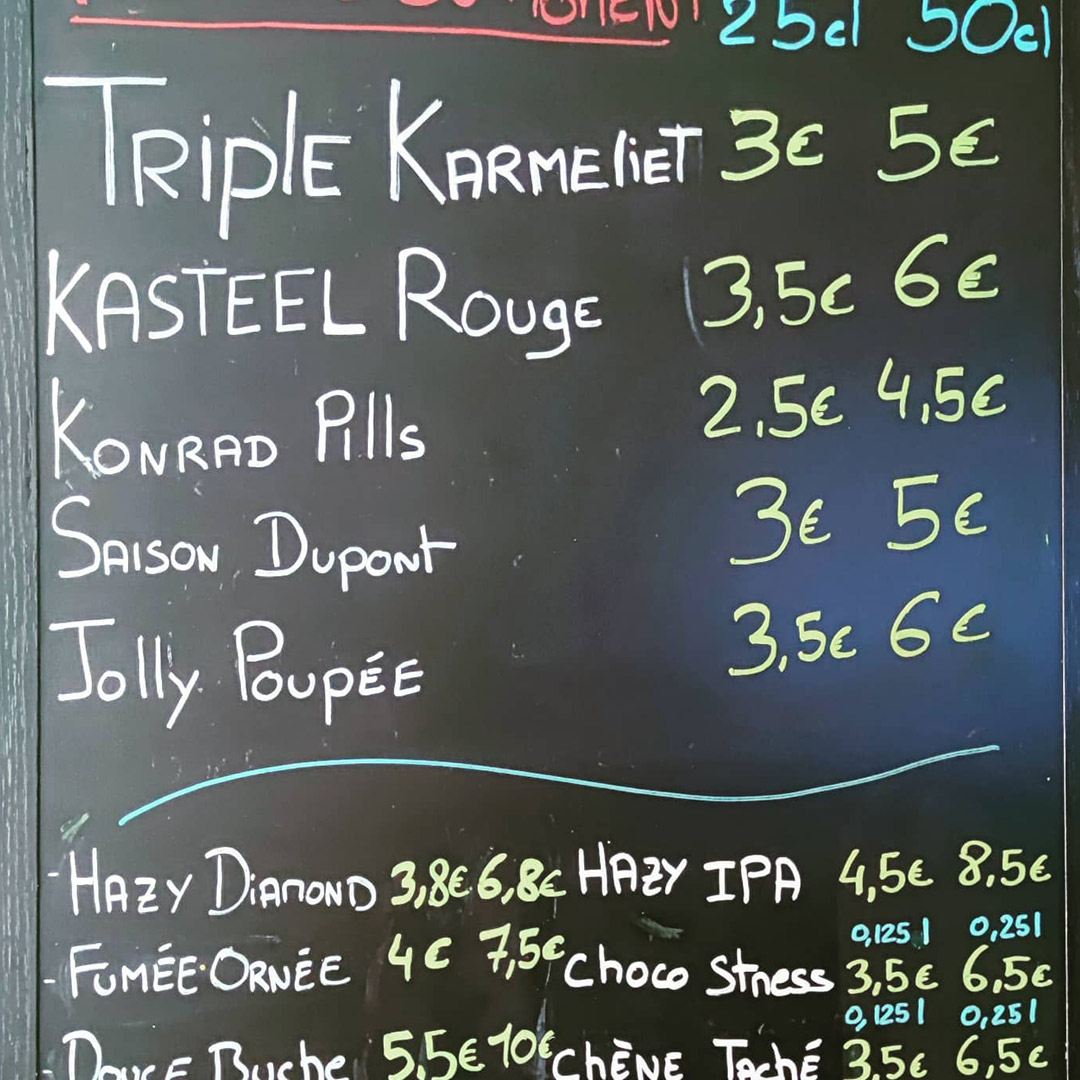 MOMENT 25cl 50cl
TRIPLE KARMELIET 3€ 5€
KASTEEL ROUGE 3,5€ 6€
KONRAD Pills 2,5€ 4,5€
SAISON DUPONT 3€ 5€
Jolly POUPÉE 3,5€ 6€
- HAZY DIAMOND 3,8€ 6,8€ HAZY IPA 4,5€ 8,5€
0,125l 0,25l
- FUMÉE ORNÉE 4€ 7,5€ Choco Stness 3,5€ 6,5€
0,125l 0,25l
- DOUCE Buche 5,5€ 10€ CHÊNE Taché 3,5€ 6,5€